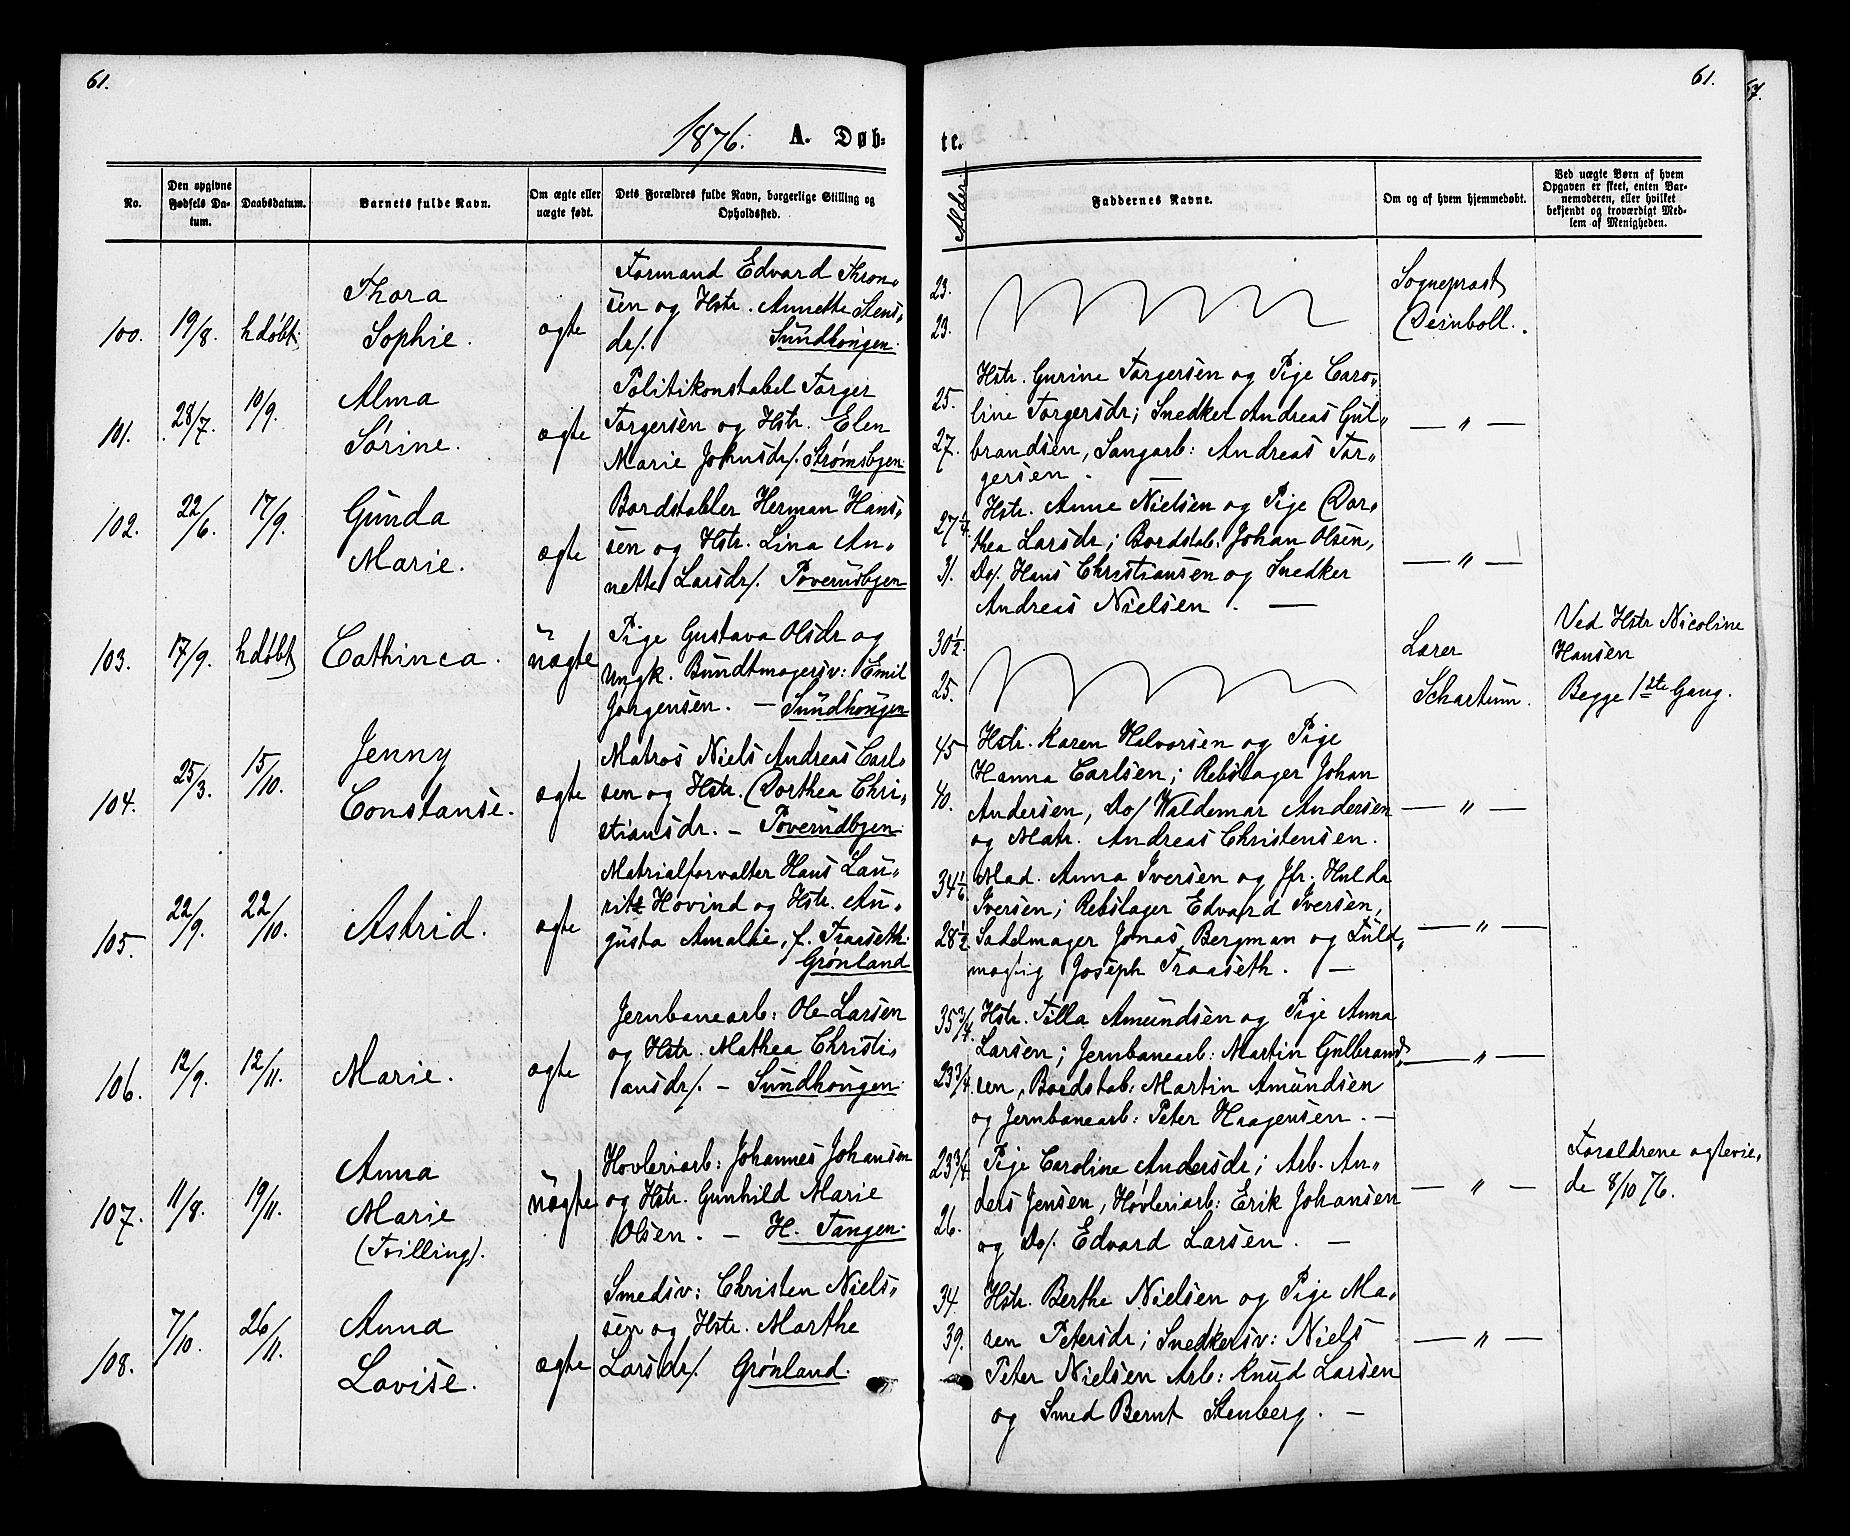 61.
61.
1876. A. Døb-
te.
No.
Den opgivne
Fødsels Da-
tum.
Daabsdatum.
Barnets fulde Navn.
Om ægte eller
uægte født.
Dets Forældres fulde Navn, borgerlige Stilling og
Opholdssted.
Alder.
Faddernes Navne.
Om og af hvem hjemmedøbt.
Ved uægte Børn af hvem
Opgaven er skeet, enten Bar-
nemoderen, eller hvilket
bekjendt og troværdigt Med-
lem af Menigheden.
100.
19/8.
hdøbt
Thora
Sophie.
ægte
Formand Edvard Thron-
sen og Hstr. Annette Stens-
dr/. Sundhougen.
23.
23.
Sogneprest
Deinboll.
101.
28/7.
10/9.
Alma
Sørine.
ægte
Politikonstabel Torger
Torgersen og Hstr. Elen
Marie Johnsdr/. Strømsbyen.
25.
27.
Hstr. Gurine Torgersen og Pige Caro-
line Torgersdr; Snedker Andreas Gul-
brandsen, Sangarb: Andreas Tor-
gersen. —
— " —
102.
22/6.
17/9.
Gunda
Marie.
ægte
Bordstabler Herman Hans-
sen og Hstr. Lina An-
nette Larsdr/. Toverudbyen
27 1/4
31.
Hstr. Anne Nielsen og Pige Dor-
thea Larsdr; Bordstab: Johan Olsen,
Do/. Hans Christiansen og Snedker
Andreas Nielsen. —
— " —
103.
17/9.
hdøbt
Cathinca.
uægte
Pige Gustava Olsdr og
Ungk. Bundtmagersv: Emil
Jørgensen. — Sundhougen
30 1/2.
25.
Lærer
Schartum.
Ved Hstr Nicoline
Hansen
Begge 1ste Gang.
104.
25/3.
15/10.
Jenny
Constanse.
ægte
Matros Niels Andreas Carl-
sen og Hstr. Dorthea Chri-
stiansdr. — Toverudbyen.
45
40.
Hstr. Karen Halvorsen og Pige
Hanna Carlsen; Rebslager Johan
Andersen, Do/ Waldemar Andersen
og Matr. Andreas Christensen.
— " —
105.
22/9.
22/10.
Astrid.
ægte
Matrialforvalter Hans Lau-
ritz Hovind og Hstr. Au-
gusta Amalie, f. Traaseth.
Grønland
28 1/2.
Mad. Anna Iversen og Jfr. Hulda
Iversen; Rebslager Edvard Iversen,
Sadelmager Jonas Bergman og Fuld-
mægtig Joseph Traaseth. —
— " —
106.
12/9.
12/11.
Marie.
ægte
Jernbanearb: Ole Larsen
og Hstr. Mathea Christi-
ansdr/. — Sundhougen.
35 3/4.
23 3/4.
Hstr. Tilla Amundsen og Pige Anna
Larsen; Jernbanearb: Martin Gulbrand-
sen, Bordstab: Martin Amundsen
og Jernbanearb: Peter Haagensen. —
— " —
107.
11/8.
19/11.
Anna
Marie
(Tvilling).
uægte
Hovleriarb: Johannes Johansen
og Hstr. Gunhild Marie
Olsen. — H. Tangen.
23 3/4.
26.
Pige Caroline Andersdr; Arb. An-
ders Jensen, Høvleriarb: Erik Johansen
og Do/. Edvard Larsen. —
— " —
Forældrene ægtevie-
de 8/10 76.
108.
7/10.
26/11.
Anna
Lovise.
ægte
Smedsv: Christen Niels-
sen og Hstr. Marthe
Larsdr/. Grønland.
34.
39.
Hstr. Berthe Nielsen og Pige Ma-
ren Petersdr; Snedkersv: Niels
Peter Nielsen Arb: Knud Larsen
og Smed Bernt Stenberg. —
— " —